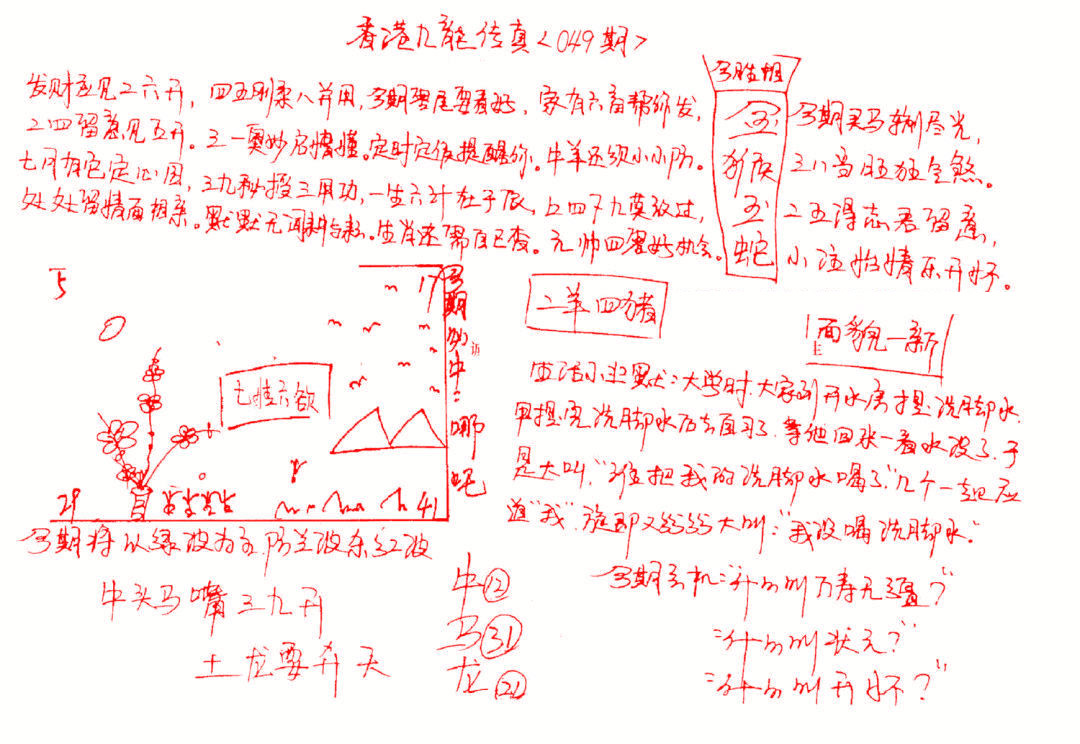 香港九龍传真<049期>
发财应见二六开，四五刚柔八并用，今期双尾要看好，家有六畜帮你发，
二四留意见五开。三一奥妙启懵懂。定时定位提醒你。牛羊还须小小防。
七月有它定心田，三九秘授三用功，一生六计在于辰，上四下九莫放过，
处处留情面相亲。默默无闻耕与耘。生肖还需自己查。元帅四留好机会。
今期买马输尽光，
三八当旺独全煞。
二五得志君留意，
小注怡情乐开怀。
金
猴
玉
蛇
5
17
七情六欲
29
41
今期幼中：哪吒
今期将以绿波为主，防兰波杀红波
二羊四猪
面貌一新
生活小幽默：大学时，大家到开水房提洗脚水，
甲提完洗脚水后去自习了，等他回来一看水没了，于
是大叫“谁把我的洗脚水喝了”，几个一起应
道“我”，旋即又纷纷大叫：“我没喝洗脚水。”
今期玄机：“什么叫万寿无疆？”
：“什么叫状元？”
：“什么叫开怀？”
牛头马嘴三九开
土龙要奔天
牛⑫
马㉛
龙㉑